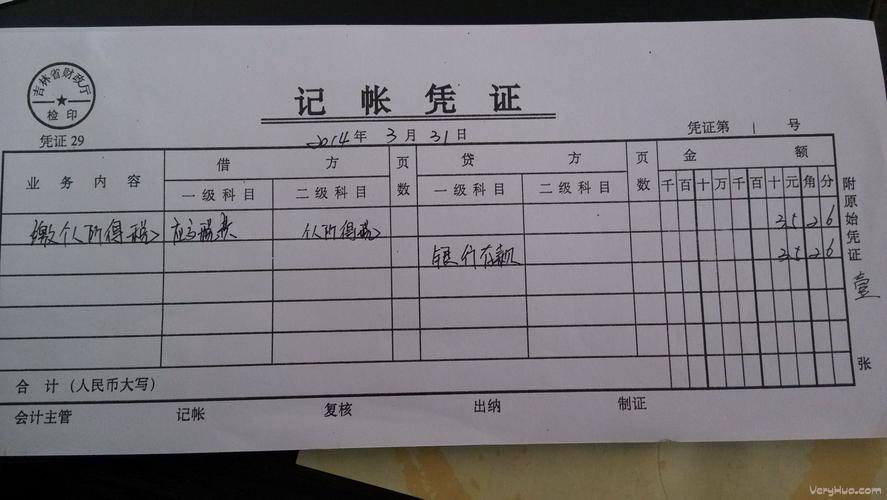 吉林省财政厅
检印
记帐凭证
凭证 29
2014年 3月 31日
凭证第 1 号
业务内容 借方 页数 贷方 页数 金额
一级科目 二级科目 一级科目 二级科目 千百十万千百十元角分
缴个人所得税 个人所得税 3526
银行存款 3526
附原始凭证 壹 张
合 计(人民币大写)
会计主管 记帐 复核 出纳 制证
VeryHuo.com